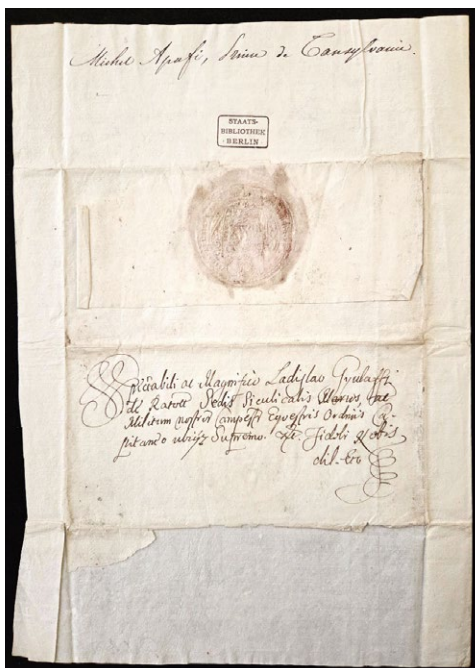 Michel Apafi, Prince de Transylvanie.
STAATS-
BIBLIOTHEK
BERLIN
Spectabili ac Magnifico Ladislao Gyulaffi
de Ratott Sedis Siculicalis Maros, ac
Militum nostror Campestr Equestris Ordinis Ca-
pitaneo ubiqz Supremo. Etc. Fideli Nobis
dil-cto